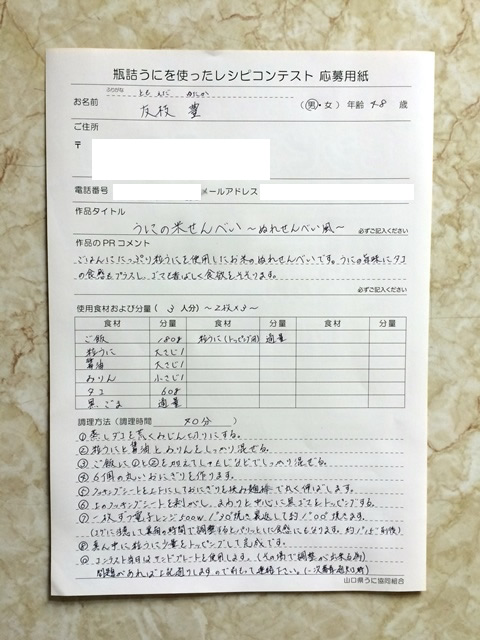 瓶詰うにを使ったレシピコンテスト 応募用紙
ふりがな とも えだ
お名前 友枝 豊 (男・女) 年齢 48 歳
ご住所
〒
電話番号 メールアドレス
作品タイトル
うにの米せんべい 〜ぬれせんべい風〜 必ずご記入ください
作品のPRコメント
ごはんにたっぷり粒うにを使用したお米のぬれせんべいです。うにの旨味にタコ
の食感をプラスし、ごまで香ばしく食欲をそそります。
必ずご記入ください
使用食材および分量 ( 3 人分) 〜2枚×3〜
食材 分量 食材 分量 食材 分量
ご飯 180g 粒うに(トッピング用) 適量
粒うに 大さじ1
醤油 大さじ1
みりん 小さじ1
タコ 60g
黒ごま 適量
調理方法 (調理時間 40分 )
①蒸しダコを荒くみじん切りにする。
②粒うにと醤油とみりんをしっかり混ぜる。
③ご飯に①と②を加えてしゃもじなどでしっかり混ぜる。
④6個の丸いおにぎりを作ります。
⑤クッキングシートを上下にしておにぎりを挟み麺棒で丸く伸ばします。
⑥上のクッキングシートを剥がし、まわりと中心に黒ごまをトッピングする。
⑦一枚ずつ電子レンジ500w 1分30秒焼き裏返して約1分00秒焼きます。
⑧真ん中に粒うに少量をトッピングして完成です。
⑨コンテスト当日はサンドプレートを使用します。
問題があれば上記通りしますので前もって連絡下さい。
山口県うに協同組合